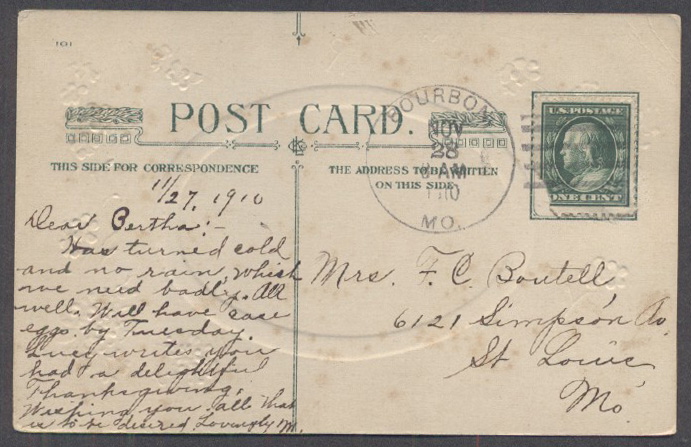 101
POST CARD.
THIS SIDE FOR CORRESPONDENCE
THE ADDRESS TO BE WRITTEN
ON THIS SIDE
BOURBON
NOV
28
AM
1910
MO.
U.S. POSTAGE
ONE CENT
11/27, 1910
Dear Bertha:-
Has turned cold
and no rain, which
we need badly. All
well. Will have case
eggs by Tuesday.
Lucy writes you
had a delightful
Thanksgiving.
Wishing you all that
is to be desired Lovingly M.
Mrs. F. C. Boutell
6121 Simpson Av.
St Louis
Mo.